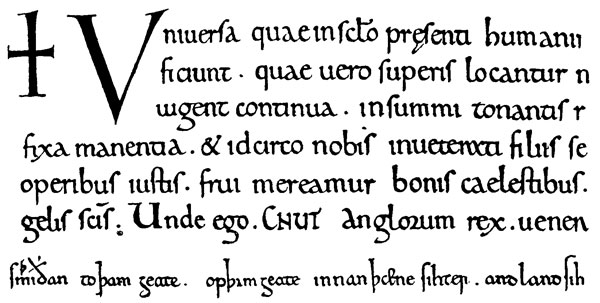 ✝ Uniuersa quae in sc̅lo pręsenti humanii
ficiunt. quae uero superis locantur n
uigent continua. in summi tonantis r
fixa manentia. & idcirco nobis inueterati filiis se
operibus iustis. frui mereamur bonis caelestibus.
gelis sc̅is; Unde ego. CNUT anglorum rex. uenen
to þam geate. geate innan þ sihter. and sih